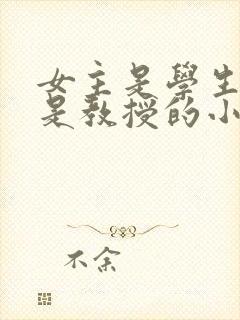 女主是學生
是教授的小
不余